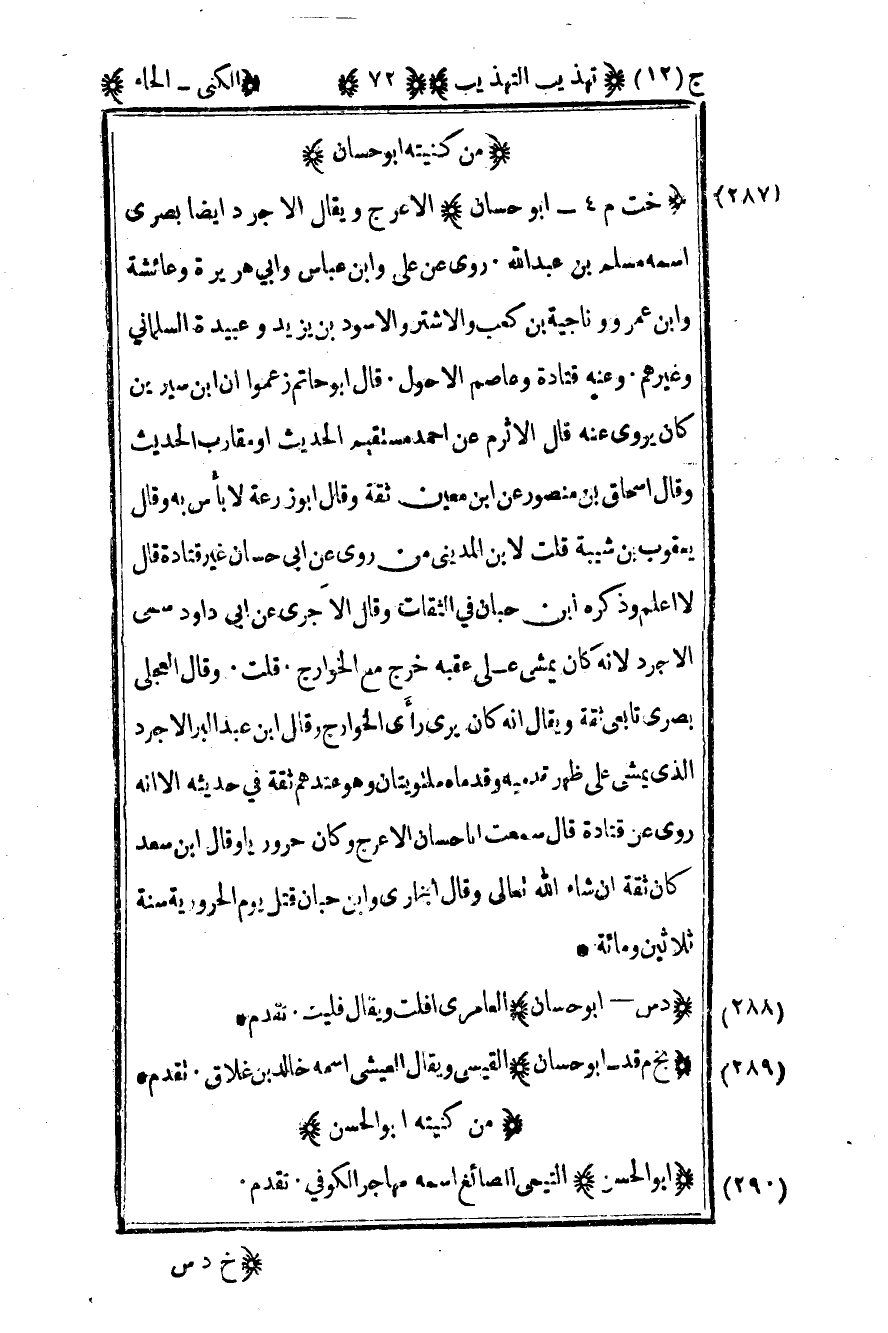 ج (١٢) ﴿ تهذيب التهذيب ﴾ ﴿ ٧٢ ﴾ ﴿ الكنى ـ الحاء ﴾
﴿ من كنيته ابوحسان ﴾
(٢٨٧) ﴿ خت م ٤ ـ ابو حسان ﴾ الاعرج ويقال الاجرد ايضا بصرى
اسمه مسلم بن عبدالله ٠ روى عن على وابن عباس وابي هريرة وعائشة
وابن عمرو و ناجية بن كعب والاشتر والاسود بن يزيد وعبيدة السلماني
وغيرهم ٠ وعنه قتادة وعاصم الاحول ٠ قال ابوحاتم زعموا ان ابن سيرين
كان يروى عنه قال الاثرم عن احمد مستقيم الحديث او مقارب الحديث
وقال اسحاق بن منصور عن ابن معين ثقة وقال ابوزرعة لا بأس به وقال
يعقوب بن شيبة قلت لابن المدينى من روى عن ابى حسان غير قتادة قال
لا اعلم وذكره ابن حبان في الثقات وقال الآجرى عن ابي داود سمى
الاجرد لانه كان يمشى على عقبه خرج مع الخوارج ٠ قلت ٠ وقال العجلى
بصرى تابعى ثقة ويقال انه كان يرى رأى الخوارج وقال ابن عبدالبر الاجرد
الذى يمشى على ظهر قدميه وقدماه ملتويتان وهو عندهم ثقة في حديثه الا انه
روى عن قتادة قال سمعت اباحسان الاعرج وكان حروريا وقال ابن سعد
كان ثقة ان شاء الله تعالى وقال البخارى وابن حبان قتل يوم الحرورية سنة
ثلاثين ومائة •
(٢٨٨) ﴿ د س — ابوحسان ﴾ العامرى افلت ويقال فليت ٠ تقدم •
(٢٨٩) ﴿ بخ م قد ـ ابوحسان ﴾ القيسى ويقال العيشى اسمه خالد بن غلاق ٠ تقدم •
﴿ من كنيته ابوالحسن ﴾
(٢٩٠) ﴿ ابوالحسن ﴾ التيمى الصائغ اسمه مهاجر الكوفي ٠ تقدم ٠
﴿ خ د س